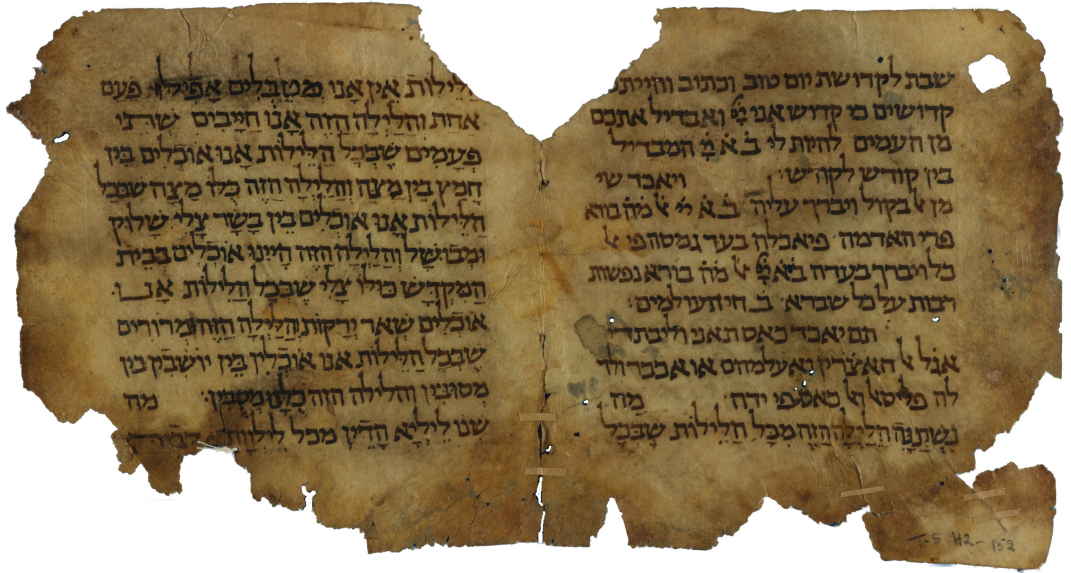 שבת לקדושת יום טוב וכתוב והייתם
קדושים כי קדוש אני ואבדיל אתכם
מן העמים להיות לי ב א מ המבדיל
בין קודש לקודש ויאכד שי
מן אלבקול ויברך עליה ב א מה בורא
פרי האדמה
כל ויברך בעדה ב א מה בורא נפשות
רבות על כל שברא ב חי העולמים
תם יאכד כאסה תאני וליבתדי
לה כאסה פי ידה מה
נִשְׁתַּנָּה הַלַּיְלָה הַזֶּה מִכָּל הַלֵּילוֹת שֶׁבְּכָל
הַלֵּילוֹת אֵין אָנוּ מְטַבְּלִים אֲפִילוּ פַּעַם
אחת והלילה הזה אָנוּ חייבים שתי
פְּעָמִים שֶׁבְּכָל הַלֵּילוֹת אָנוּ אוֹכְלִים בֵּין
חָמֵץ בֵּין מַצָּה וְהַלַּיְלָה הַזֶּה כֻּלּוֹ מַצָּה שבכל
הַלֵּילוֹת אָנוּ אוֹכְלִים בֵּין בָּשָׂר צָלִי שָׁלוּק
וּמְבוּשָּׁל וְהַלַּיְלָה הַזֶּה הָיִינוּ אוֹכְלִים בְּבֵית
הַמִּקְדָּשׁ כולו צָלִי שֶׁבְּכָל הַלֵּילוֹת אָנוּ
אוֹכְלִים שְׁאָר יְרָקוֹת וְהַלַּיְלָה הַזֶּה מְרוֹרִים
שֶׁבְּכָל הַלֵּילוֹת אנו אוֹכְלִין בֵּין יושבין בין
מסובין והלילה הזה כֻּלָּנוּ מְסֻבִּין מה
שנו לֵילְיָא הָדֵין מכל
T-S H2-152